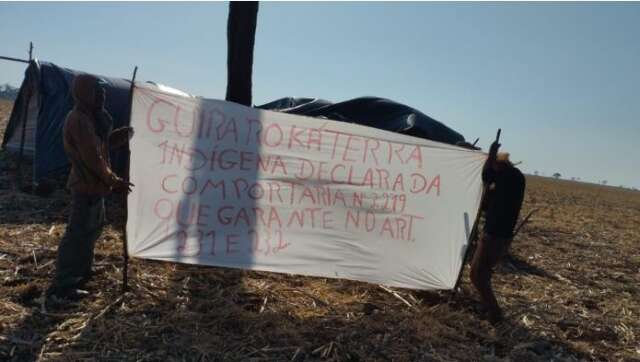 GUIRA ROKÁ TERRA
INDÍGENA DECLARADA
COM PORTARIA N. 3219
QUE GARANTE NO ART.
231 E 232